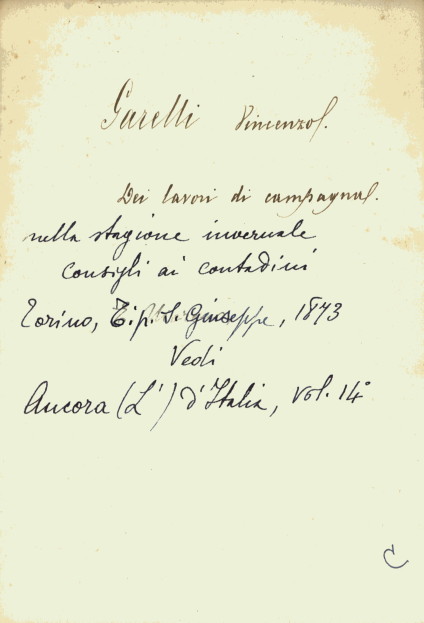 Garelli Vincenzo.
Dei lavori di campagna.
nella stagione invernale
consigli ai contadini
Torino, Tip. S. Giuseppe, 1873
Vedi
Ancora (L') d'Italia, vol. 14°
C